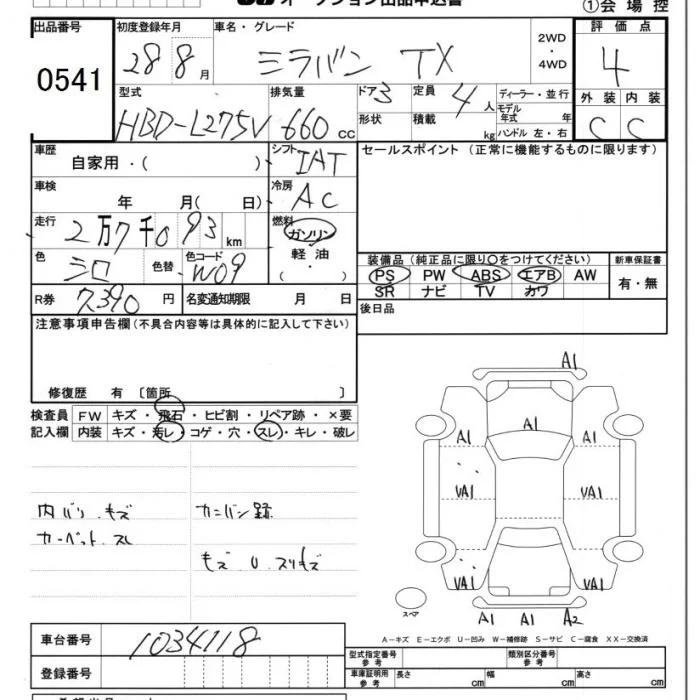 オークション出品申込書
①会場控
出品番号 初度登録年月 車名・グレード 評価点
0541 28 8月 ミラバン TX 2WD・4WD 4
型式 排気量 ドア 3 定員 4人 ディーラー・並行 外装 内装
HBD-L275V 660cc 形状 積載 kg モデル年式 年 ハンドル 左・右 C C
車歴 自家用・( ) シフト IAT セールスポイント(正常に機能するものに限ります)
車検 年 月( 日) 冷房 AC
走行 2万7千093km 燃料 ガソリン
軽油
・( )
色 シロ 色替 色コード W09
装備品(純正品に限り○をつけてください) 新車保証書
PS PW ABS エアB AW 有・無
SR ナビ TV カワ
R券 7,390円 名変通知期限 月 日 後日品
注意事項申告欄(不具合内容等は具体的に記入して下さい)
修復歴 有 [箇所 ]
検査員 FW キズ・飛石・ヒビ割・リペア跡・×要
記入欄 内装 キズ・汚レ・コゲ・穴・スレ・キレ・破レ
内バリ キズ カンバン跡
カーペット スレ
キズ U スリキズ
A1
A1
A1 A1
VA1 VA1
VA1 VA1
スペア
A1 A1 A2
A-キズ E-エクボ U-凹み W-補修跡 S-サビ C-腐食 XX-交換済
車台番号 1034118
型式指定番号 参考 類別区分番号 参考
登録番号
車庫証明用 参考 長さ cm 幅 cm 高さ cm